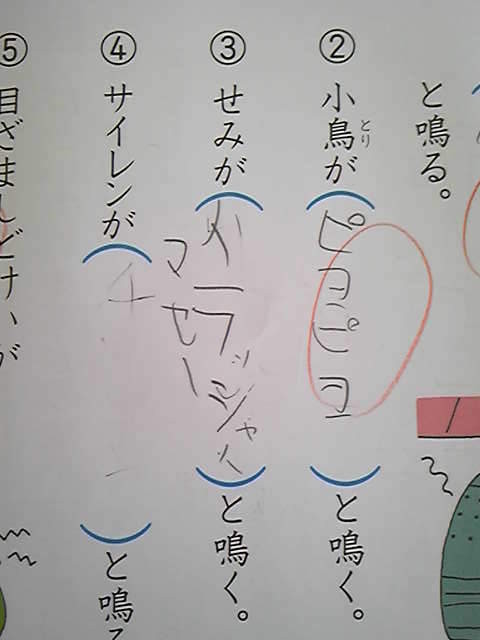 と鳴る。
② 小鳥が（ピヨピヨ）と鳴く。
とり
③ せみが（イラッシャイ）と鳴く。
マセー
④ サイレンが（　）と鳴る
⑤ 目ざましどけいが